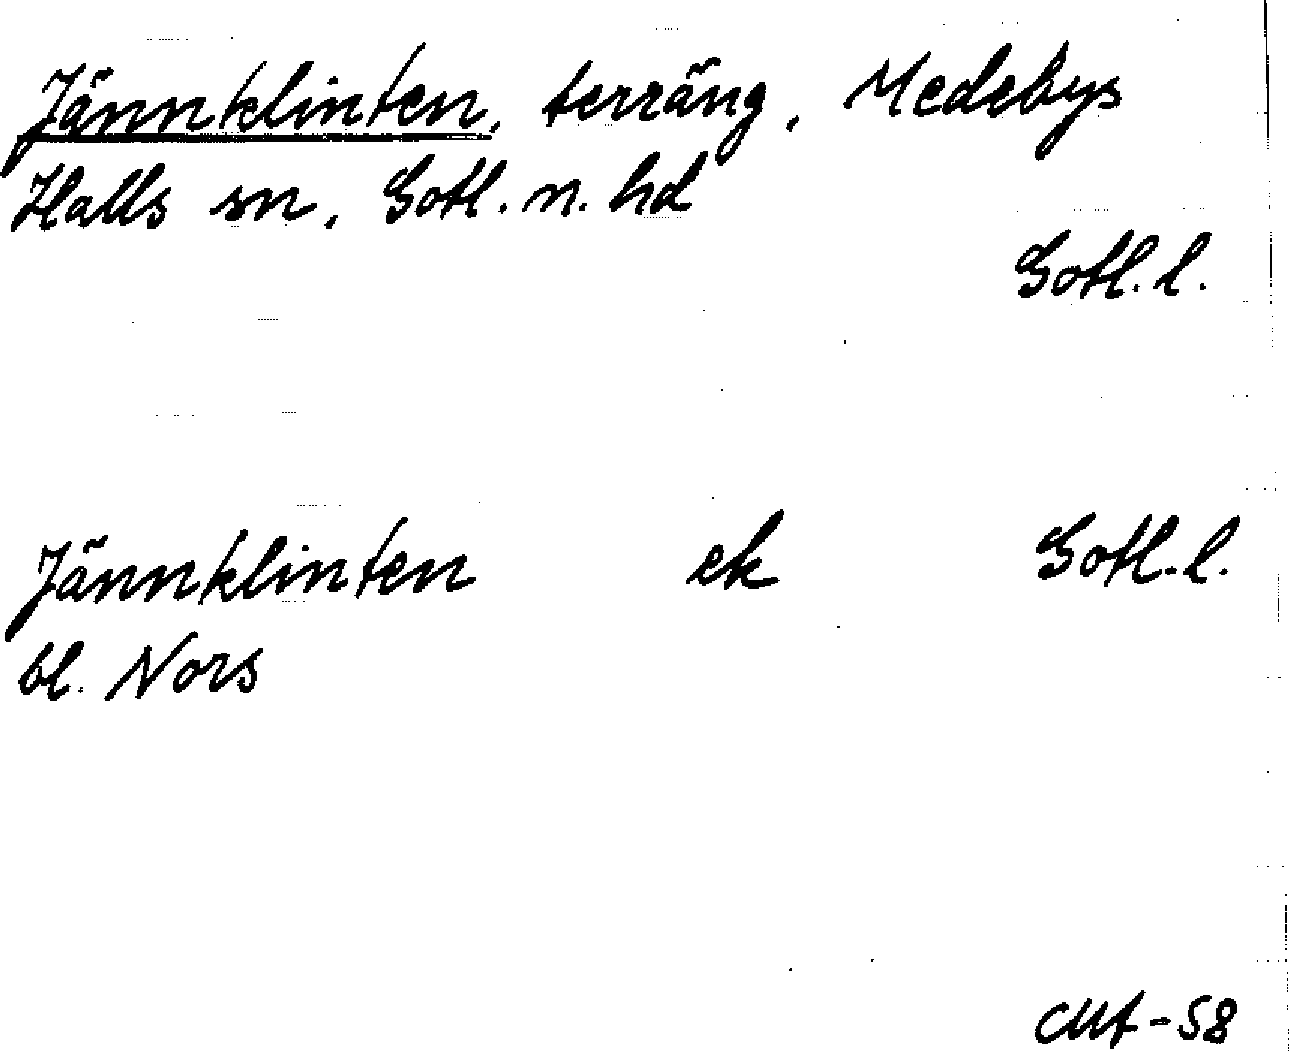 Jännklinten, terräng, Medebys
Halls sn, Gotl. n. hd
Gotl. l.
Jännklinten ek Gotl. l.
bl. Nors
CMf-58